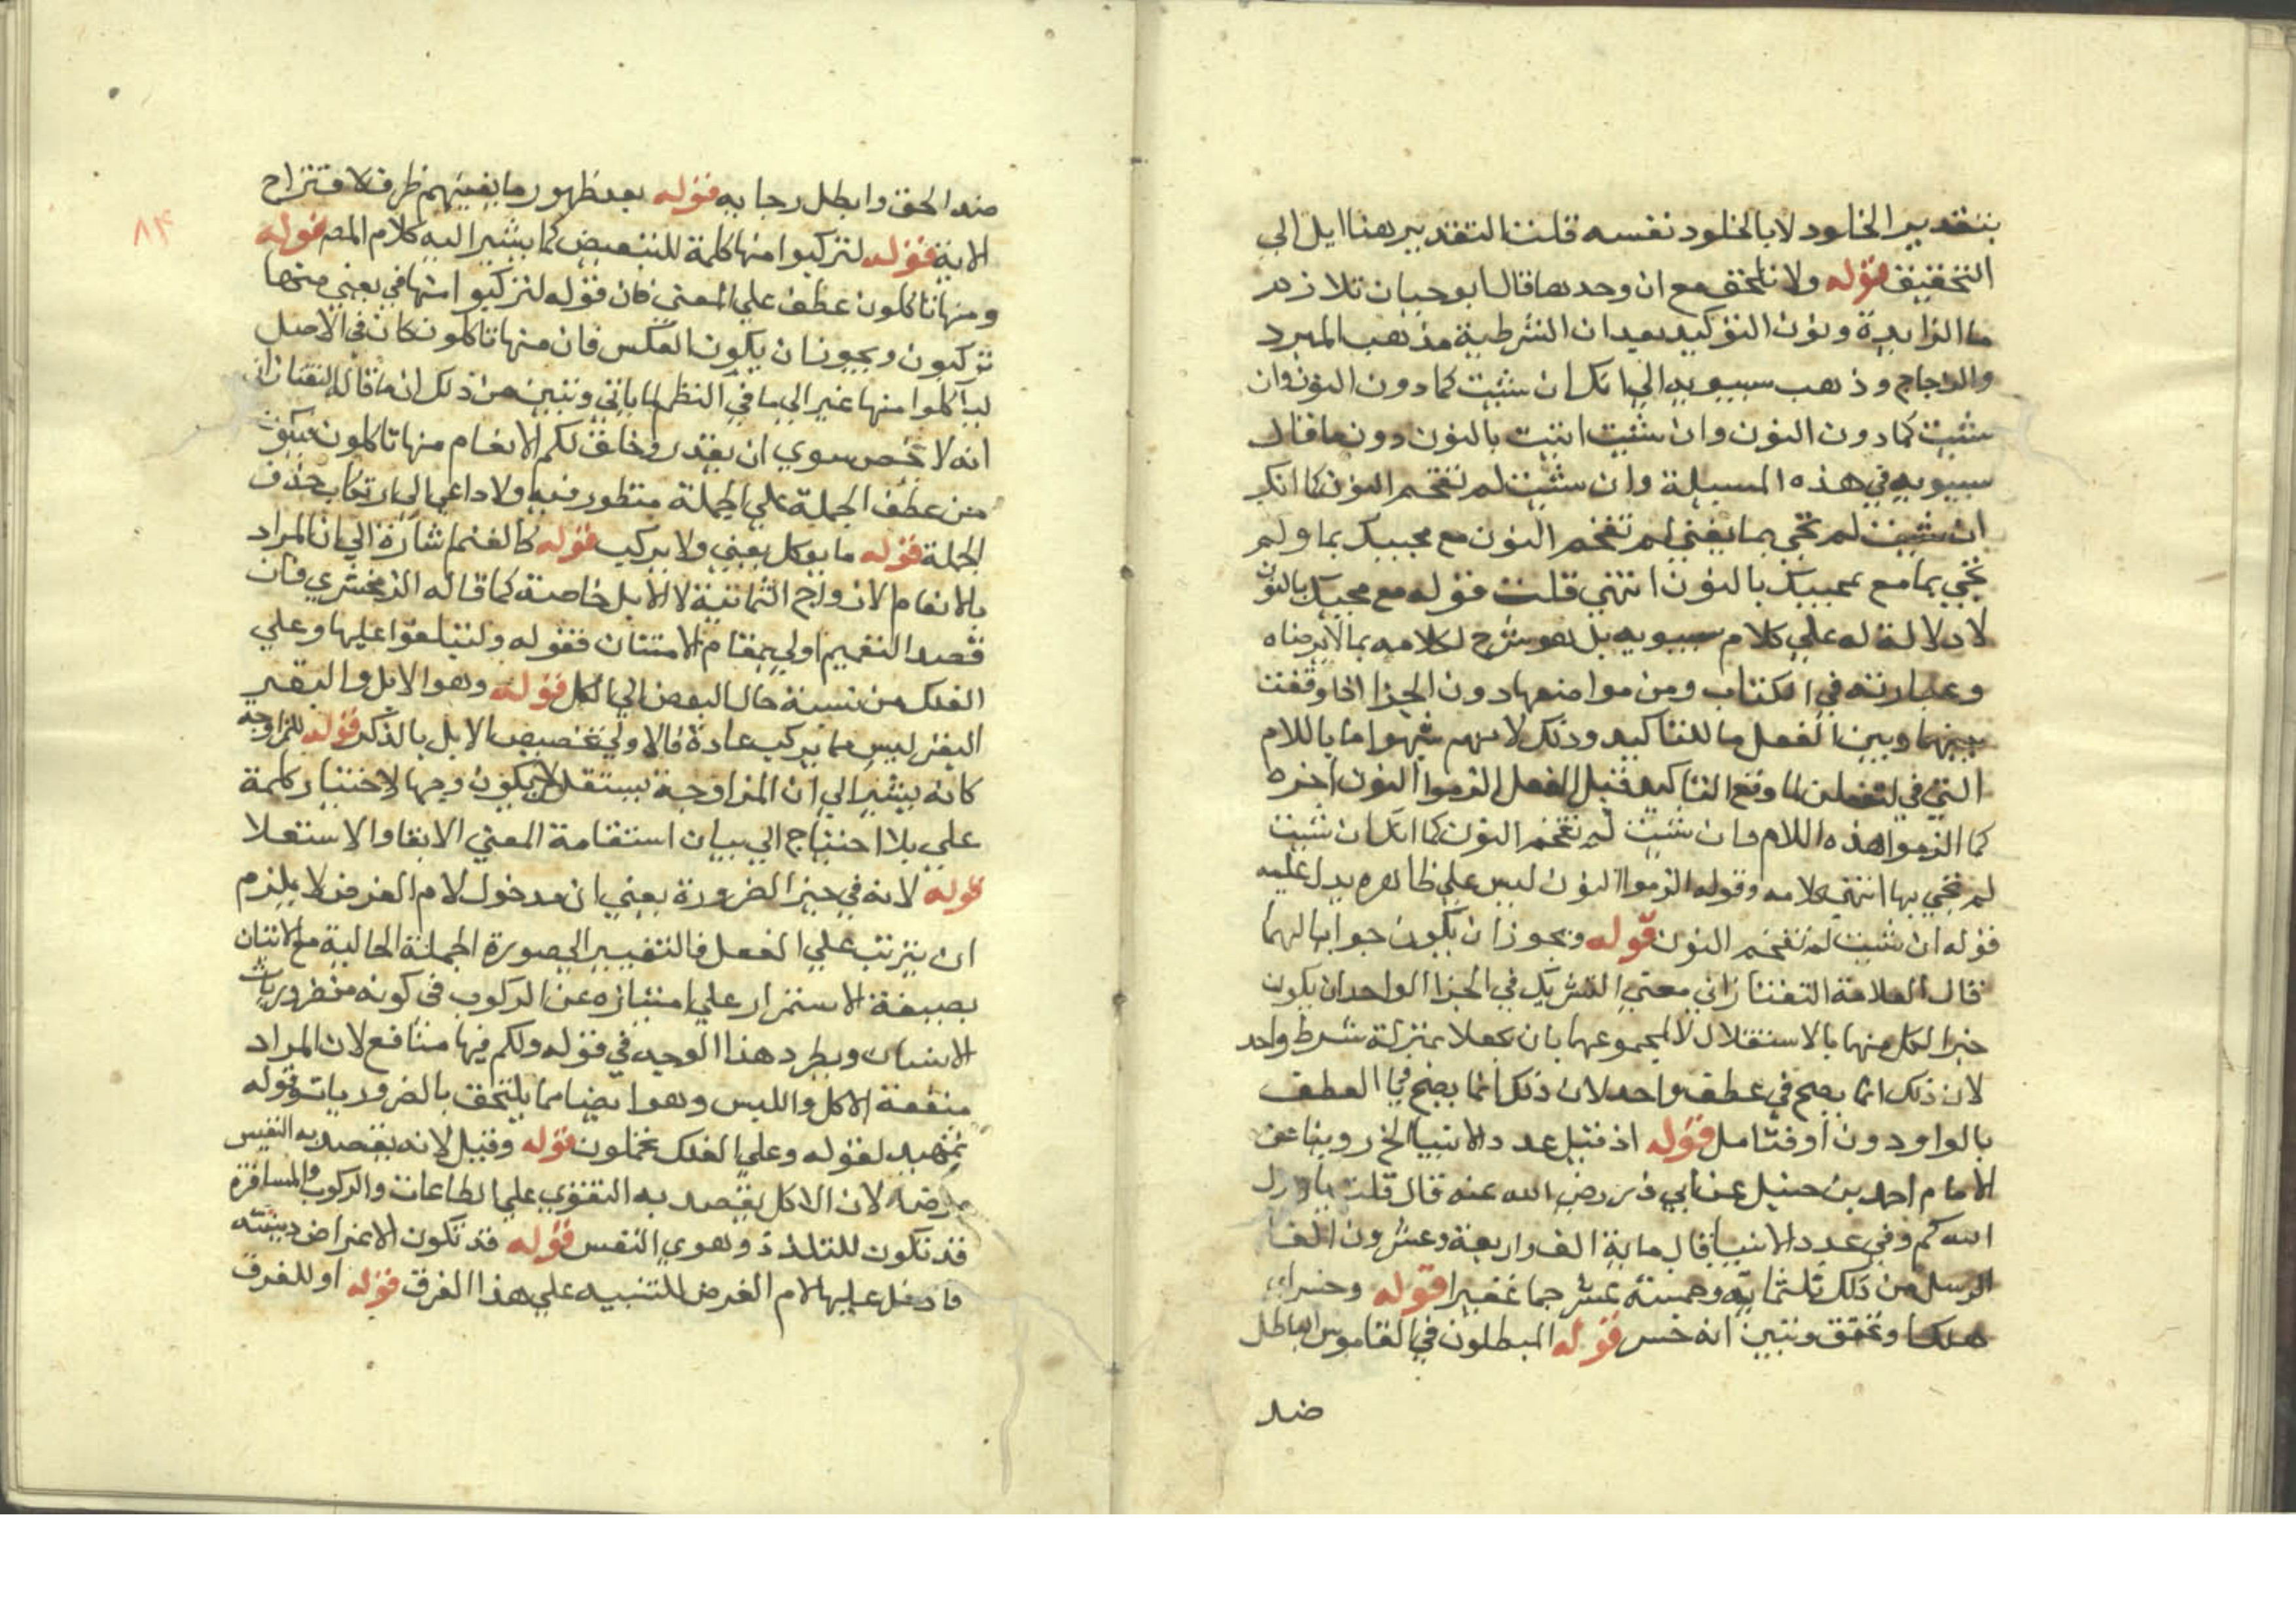 بتقدير الخلود لا بالخلود نفسه قلت التقدير هنا ايل الي
التحقيق قوله ولا تلحق مع ان وحدها قال ابو حيان تلازم
ما الزايدة ونون التوكيد بعد ان الشرطية مذهب المبرد
والزجاج وذهب سيبويه الي انك ان شئت كما دون النون وان
شئت كما دون النون وان شئت اتيت بالنون دون ما قال
سيبويه في هذه المسيلة وان شئت لم تقحم النون كما انك
ان شئت لم تجي بما يعني لم تقحم النون مع مجيبك بما ولم
تجي بما مع مجيبك بالنون انتهي قلت قوله مع مجيبك بالنون
لا دلالة له علي كلام سيبويه بل هو شرح لكلامه بما لا يرضاه
وعبارته في الكتاب ومن مواضعها دون الجزا اذا وقعت
بينها وبين الفعل ما للتاكيد وذلك لانهم شبهوا ما باللام
التي في لتفعلن لما وقع التاكيد قبل الفعل الزموا النون اخره
كما الزموا هذه اللام فان شئت لم تقحم النون كما انك ان شئت
لم تجي بها انتهي كلامه وقوله الزموا النون ليس علي ظاهره يدل عليه
قوله ان شئت لم تقحم النون قوله ويجوز ان يكون جوابا لهما
قال العلامة التفتازاني معني التشريك في الجزا الواحد ان يكون
خبرا لكل منها بالاستقلال لا لمجموعها بان يجعلا بمنزلة شرط واحد
لان ذلك انما يصح في عطف واحد لان ذلك انما يصح في العطف
بالواو دون او فتامل قوله اذ قيل عدد الانبيا الخ روينا عن
الامام احمد بن حنبل عن ابي ذر رضي الله عنه قال قلت يا رسول
الله كم وفي عدد الانبيا قال ماية الف واربعة وعشرون الفا
الرسل من ذلك ثلثماية وخمسة عشر جما غفيرا قوله وخسر اي
هلك او تحقق وتبين انه خسر قوله المبطلون في القاموس الباطل
ضد
ضد الحق وابطل رجا به قوله بعد ظهور ما يغنيهم ظرف لاقتراح
الاية قوله لتركبوا منها كلمة للتبعيض كما يشير اليه كلام المص قوله
ومنها تاكلون عطف علي المعني فان قوله لتركبوا منها في يعني منها
تركبون ويجوز ان يكون العكس فان منها تاكلون كان في الاصل
لياكلوا منها غير الي ما في النظم لما ياتي وتبين من ذلك ان ما قاله التفتازاني
انه لا مخص سوي ان يقدر وخلق لكم الانعام منها تاكلون فيكون
من عطف الجملة علي الجملة منظور فيه ولا داعي الي ارتكاب حذف
الجملة قوله ما يوكل يعني ولا يركب قوله كالغنم اشارة الي ان المراد
بالانعام الازواج الثمانية لا الابل خاصة كما قاله الزمخشري فان
قصد التعميم اولي بمقام الامتنان فقوله ولتبلغوا عليها وعلي
الفلك من نسبة حال البعض الي الكل قوله وهو الابل والبقر
البقر ليس مما يركب عادة فالاولي تخصيص الابل بالذكر قوله للمزاوجة
كانه يشير الي ان المزاوجة يستقل لان يكون وجها لاختيار كلمة
علي بلا احتياج الي بيان استقامة المعني الابقا والاستعلا
قوله لانه في حيز الضرورة يعني ان مدخول لام الغرض لا يلزم
ان يترتب علي الفعل فالتغيير الي صورة الجملة الحالية مع الاتيان
بصيغة الاستمرار علي امتيازه عن الركوب في كونه من ضروريات
الانسان ويطرد هذا الوجه في قوله ولكم فيها منافع لان المراد
منفعة الاكل واللبس وهو ايضا مما يلتحق بالضروريات وقوله
تمهيد لقوله وعلي الفلك تحملون قوله وقيل لانه يقصد به النفيس
مرضه لان الاكل يقصد به التقوي علي الطاعات والركوب والمسافرة
قد تكون للتلذذ وهوي النفس قوله قد تكون الاغراض دينية
فادخل عليها لام الغرض للتنبيه علي هذا الفرق قوله او للفرق